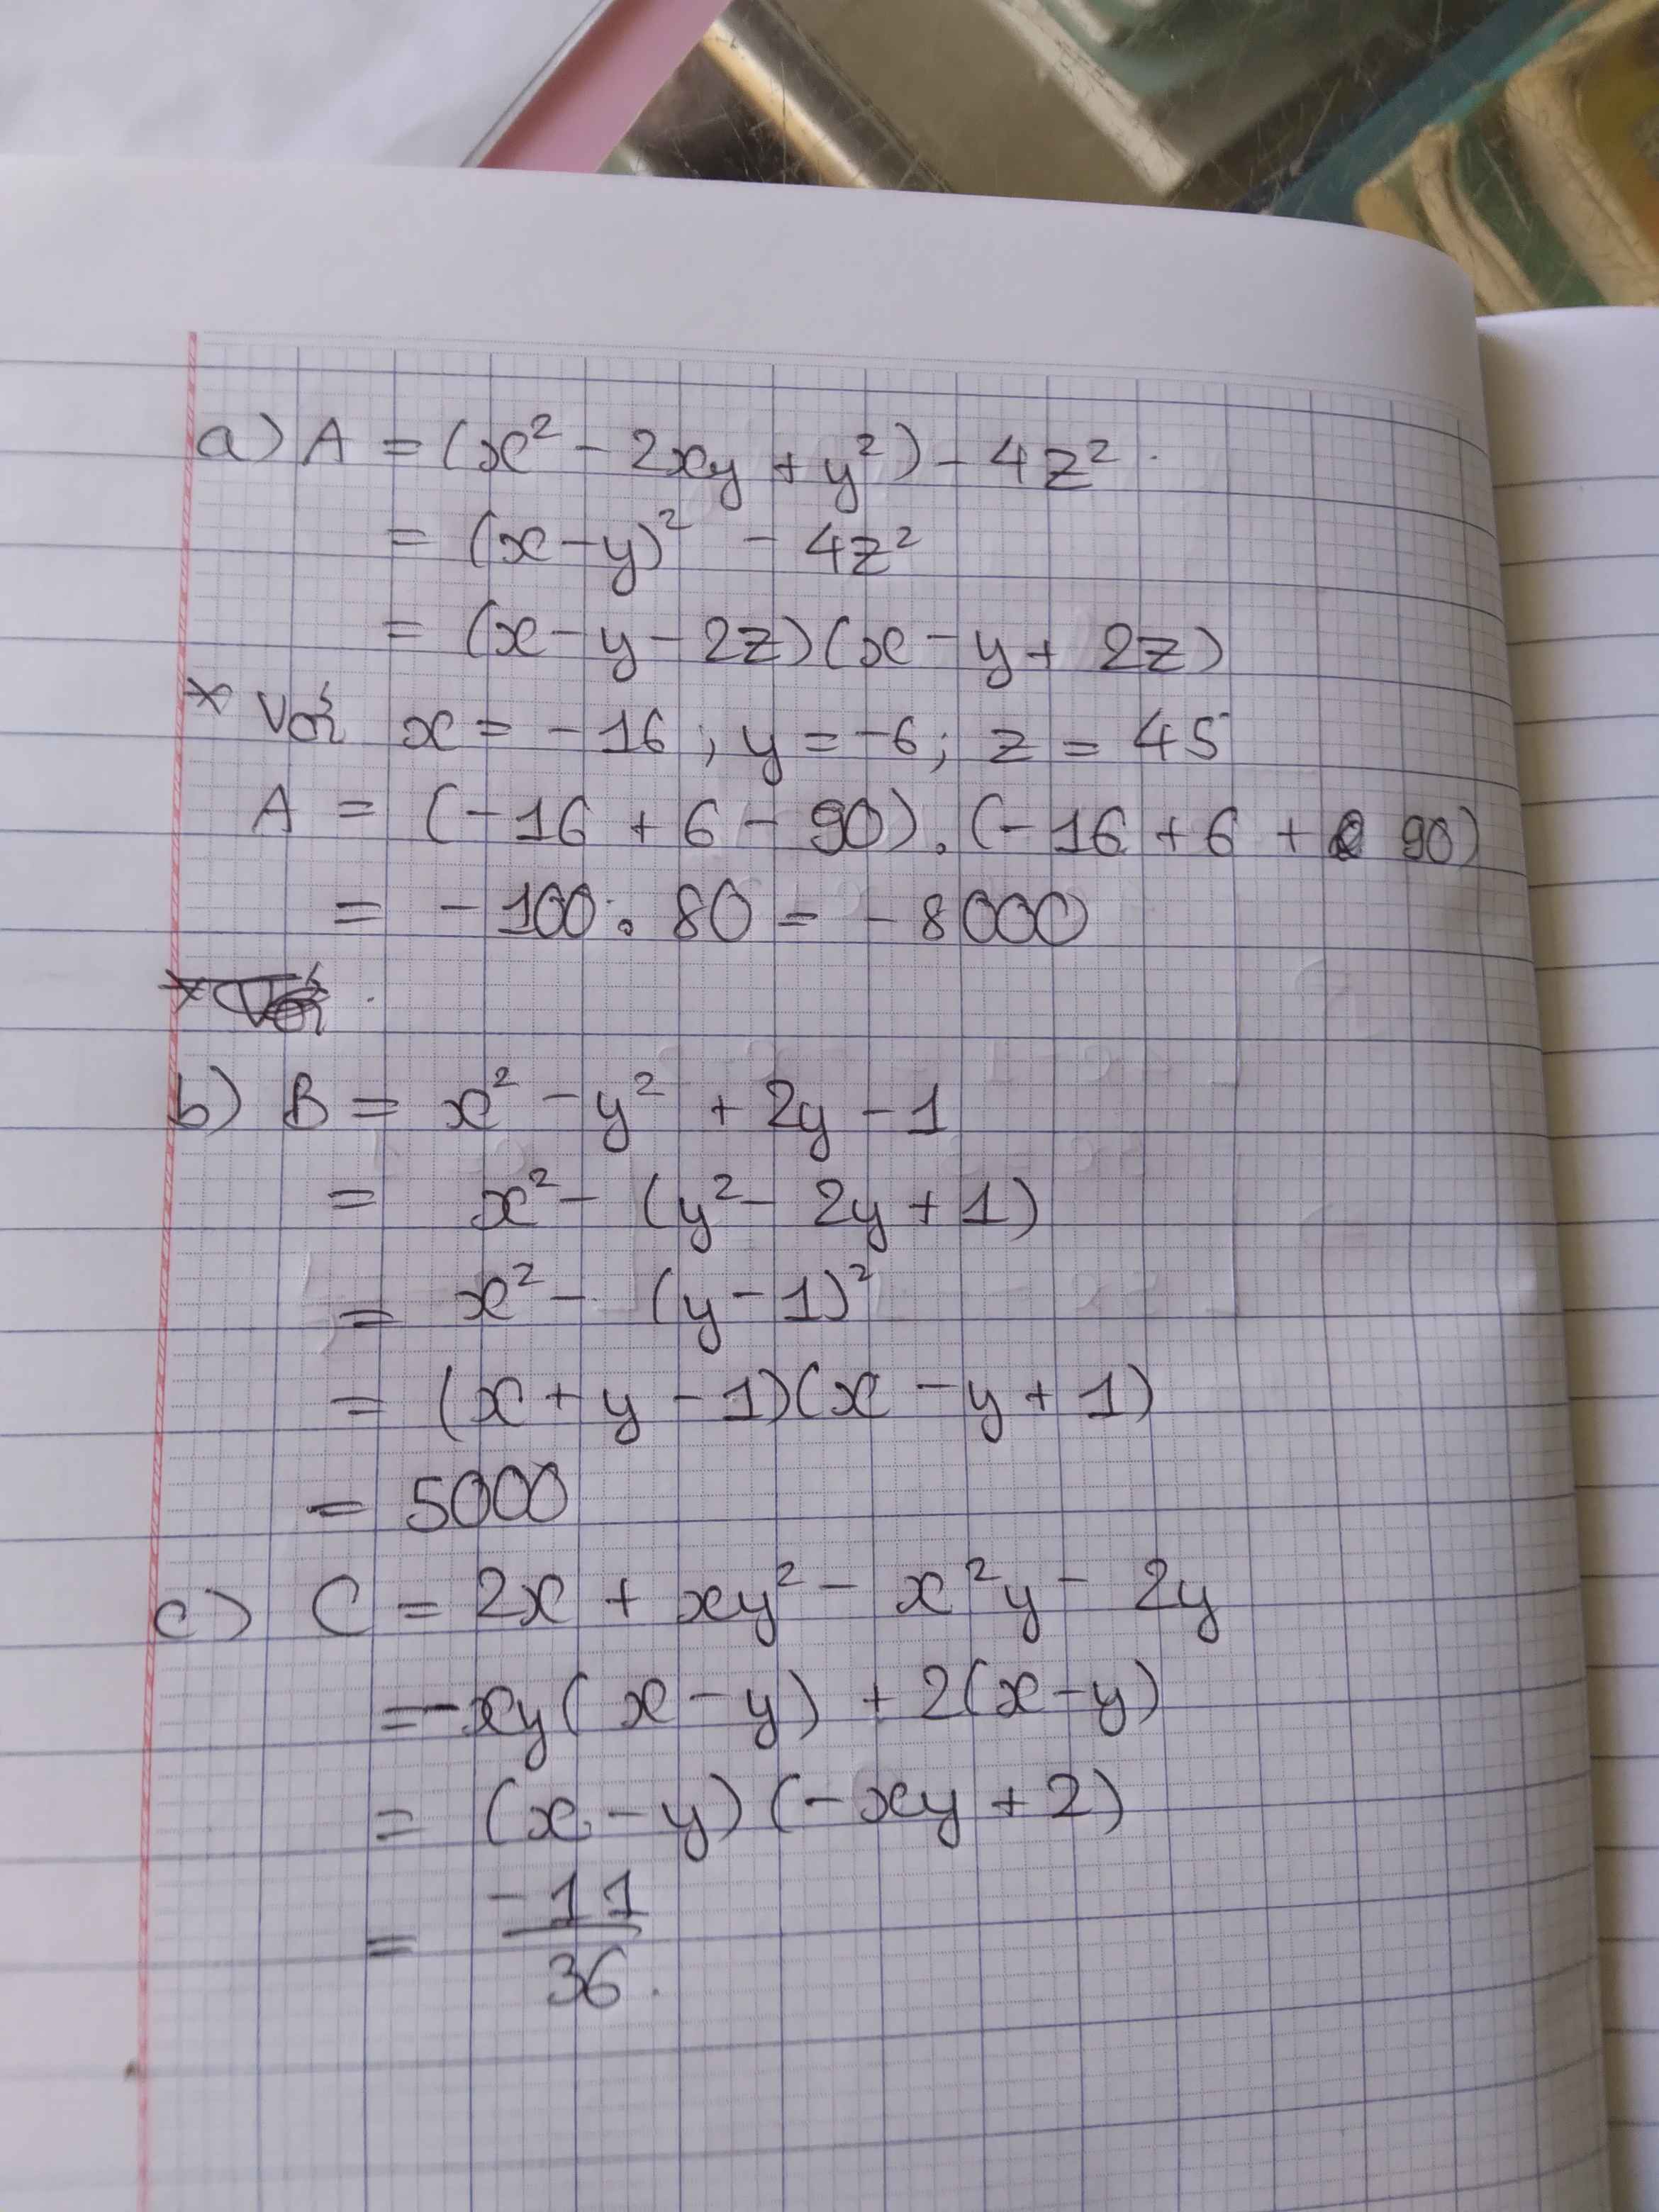 a) A = (x² - 2xy + y²) - 4z²
= (x-y)² - 4z²
= (x-y-2z)(x-y+2z)
* Với x = -16 ; y = -6 ; z = 45
A = (-16 + 6 - 90).(-16 + 6 + 90)
= -100 . 80 = -8000
* Với
b) B = x² - y² + 2y - 1
= x² - (y² - 2y + 1)
= x² - (y-1)²
= (x+y-1)(x-y+1)
= 5000
c) C = 2x + xy² - x²y - 2y
= -xy(x-y) + 2(x-y)
= (x-y)(-xy+2)
= -11/36.